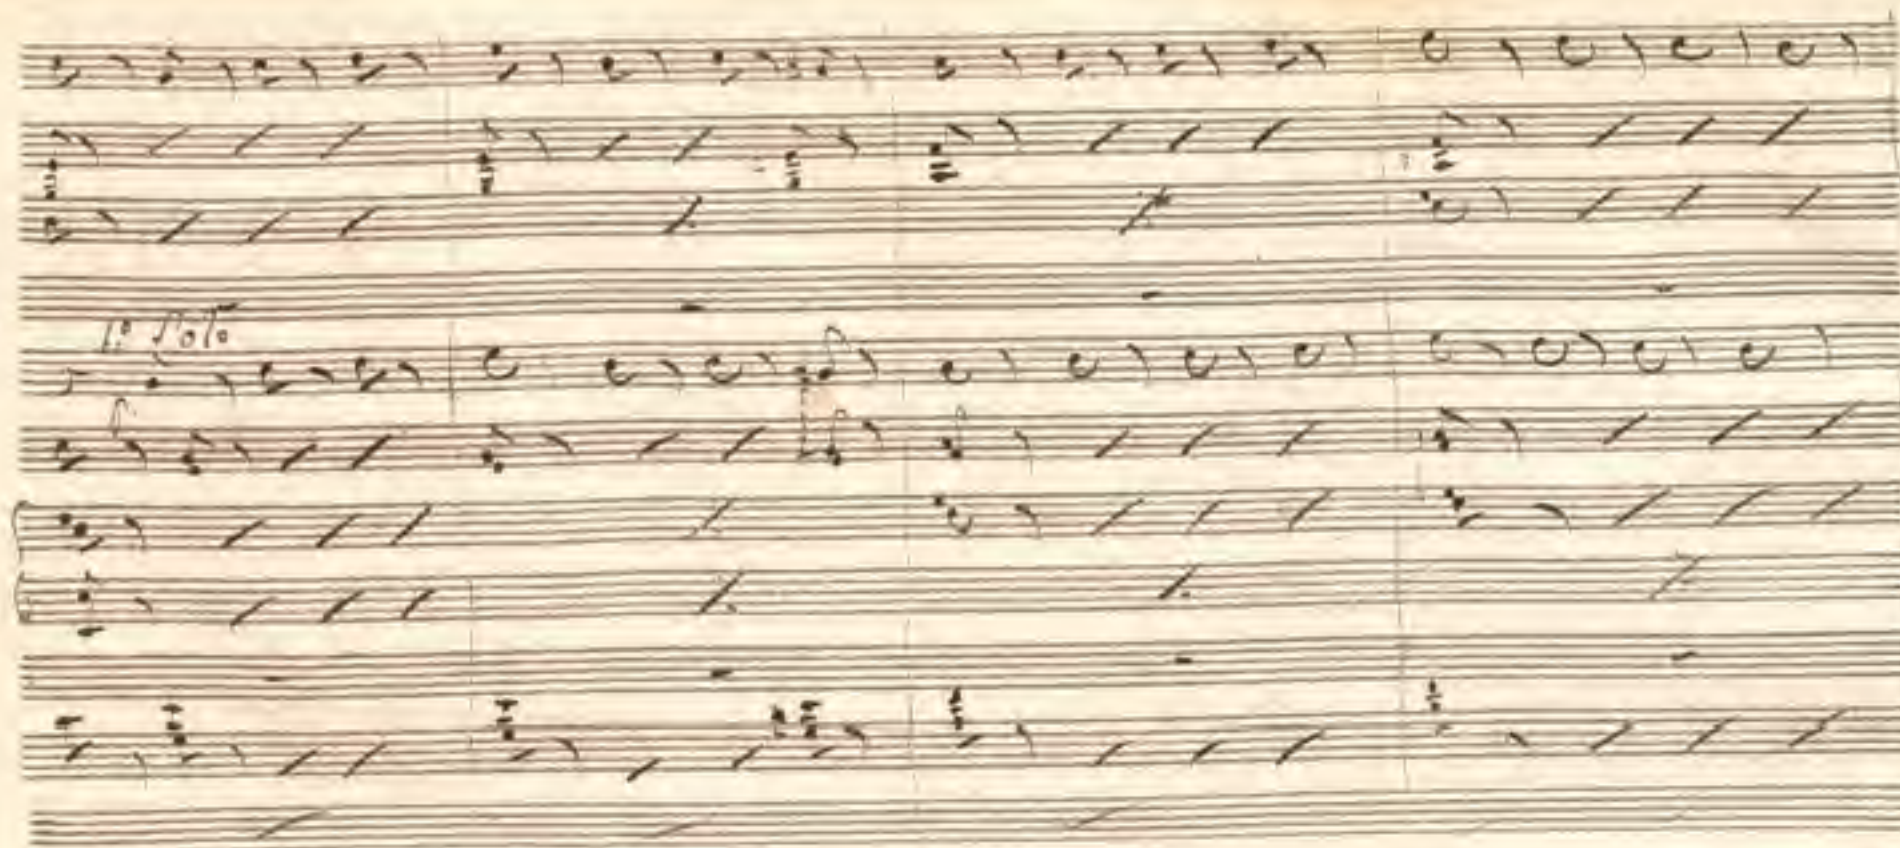 1º Solo